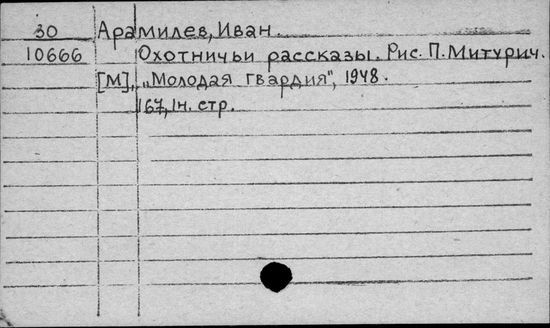 30 Арамилев, Иван.
10666 Охотничьи рассказы. Рис. П. Митурич.
[М], „Молодая гвардия", 1948.
167, 1н. стр.